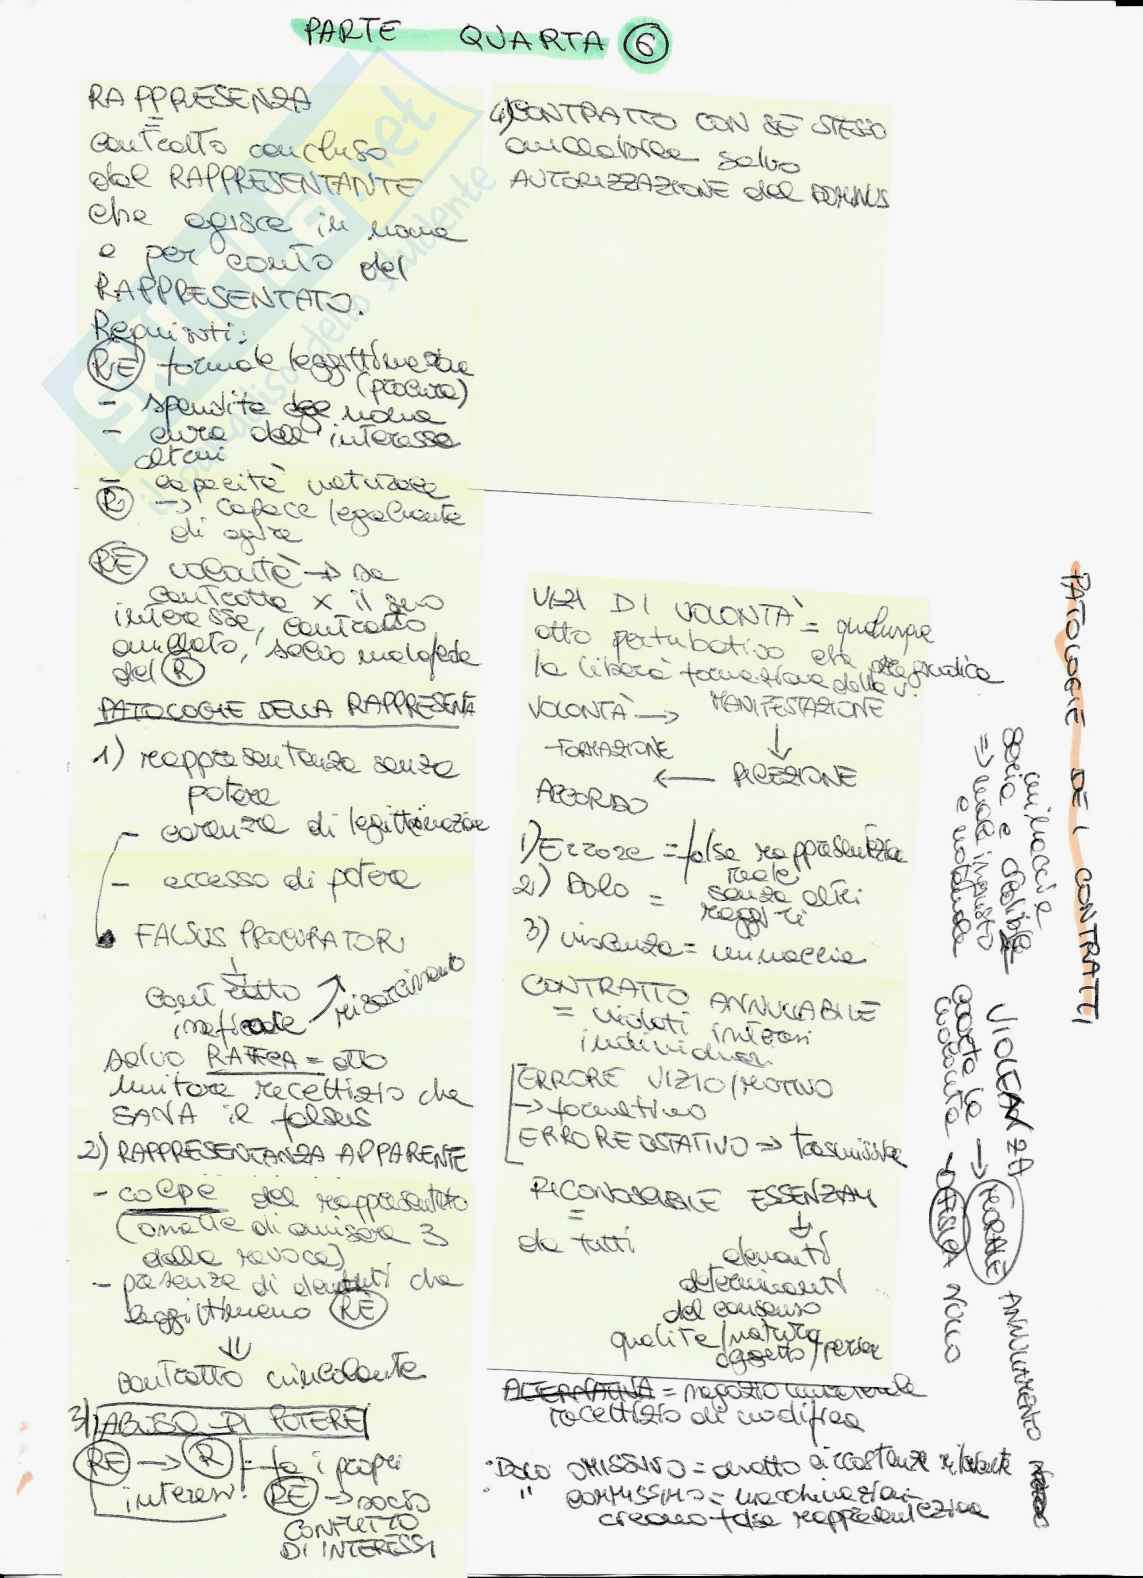 PARTE QUARTA 6
RAPPRESENZA
=
contratto concluso
dal RAPPRESENTANTE
che agisce in nome
e per conto del
RAPPRESENTATO.
Requisiti:
RE formale leggittimazione
(procura)
- spendita del nome
- cura dell'interesse
altrui
- capacità naturale
R → capace legalmente
di agire
RE volontà → se
contratta x il suo
interesse, contratto
annullato, salvo malafede
del R
PATOLOGIE DELLA RAPPRESENTA
1) rappresentanza senza
potere
- carenza di legittimazione
- eccesso di potere
FALSUS PROCURATORI
contratto
inefficace risarcimento
salvo RATIFICA = atto
unilaterale recettizio che
SANA il falsus
2) RAPPRESENTANZA APPARENTE
- colpa del rappresentato
(omette di avvisare 3
della revoca)
- presenza di elementi che
leggittimano RE
contratto vincolante
3) ABUSO DI POTERE
RE → R = fa i propri
interessi RE → 
CONFLITTO
DI INTERESSI
4) CONTRATTO CON SE STESSO
annullabile salvo
AUTORIZZAZIONE del DOMINUS
PATOLOGIE DEI CONTRATTI
VIZI DI VOLONTÀ = qualunque
atto perturbativo che pregiudica
la libera formazione della v.
VOLONTÀ → MANIFESTAZIONE
- FORMAZIONE
← RICEZIONE
ACCORDO
1) Errore = falsa rappresentazione
reale
2) Dolo = senza altri
raggiri
3) violenza = minaccia
CONTRATTO ANNULLABILE
= violati interessi
individuali
ERRORE VIZIO/MOTIVO
→ formativo
ERRORE OSTATIVO ⇒ trasmissione
RICONOSCIBILE ESSENZIALI
=
da tutti
elementi
determinanti
del consenso
qualità/natura
oggetto/persona
ALTERNATIVA = negozio unilaterale
recettizio di modifica
Dolo OMISSIVO = circostanze rilevante
" COMMISSIVO = macchinazioni
creano falsa rappresentazione
VIOLENZA → MORALE ANNULLAMENTO
coarta la volontà
FISICA NULLO
minaccia
seria e credibile
⇒ male ingiusto
e notevole